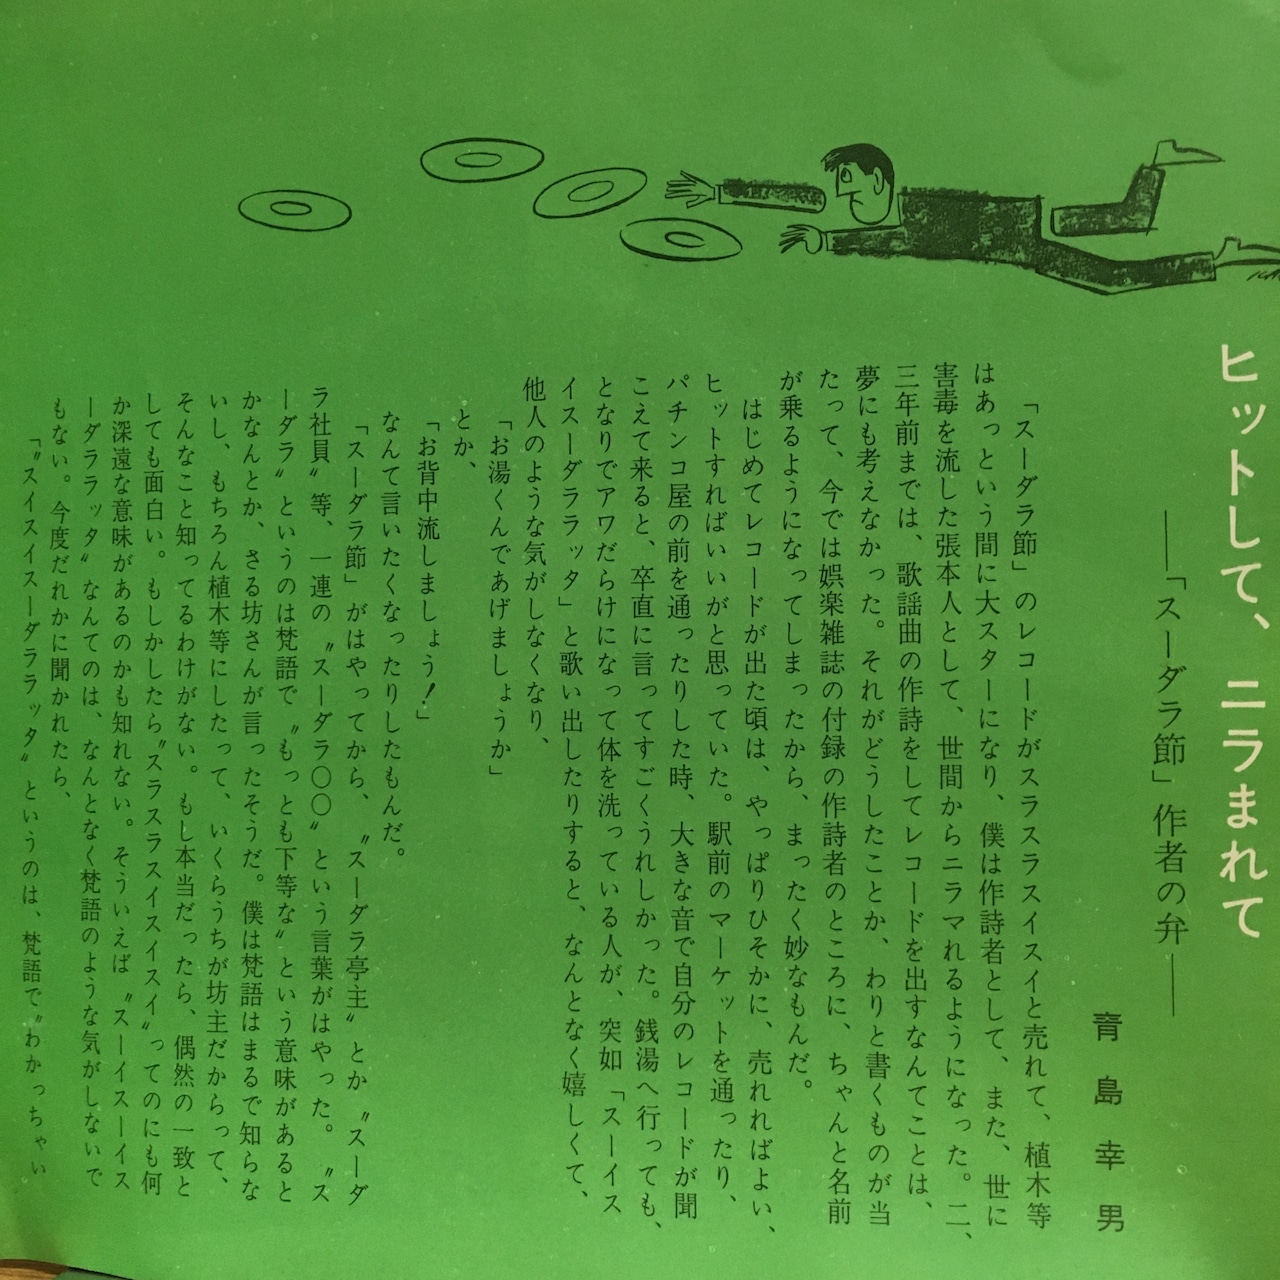 ヒットして、ニラまれて
――「スーダラ節」作者の弁――
青島幸男
「スーダラ節」のレコードがスラスラスイスイと売れて、植木等
はあっという間に大スターになり、僕は作詩者として、また、世に
害毒を流した張本人として、世間からニラマれるようになった。二、
三年前までは、歌謡曲の作詩をしてレコードを出すなんてことは、
夢にも考えなかった。それがどうしたことか、わりと書くものが当
たって、今では娯楽雑誌の付録の作詩者のところに、ちゃんと名前
が乗るようになってしまったから、まったく妙なもんだ。
はじめてレコードが出た頃は、やっぱりひそかに、売れればよい、
ヒットすればいいがと思っていた。駅前のマーケットを通ったり、
パチンコ屋の前を通ったりした時、大きな音で自分のレコードが聞
こえて来ると、卒直に言ってすごくうれしかった。銭湯へ行っても、
となりでアワだらけになって体を洗っている人が、突如「スーイス
イスーダララッタ」と歌い出したりすると、なんとなく嬉しくて、
他人のような気がしなくなり、
「お湯くんであげましょうか」
とか、
「お背中流しましょう!」
なんて言いたくなったりしたもんだ。
「スーダラ節」がはやってから、〝スーダラ亭主〟とか〝スーダ
ラ社員〟等、一連の〝スーダラ〇〇〟という言葉がはやった。〝ス
ーダラ〟というのは梵語で〝もっとも下等な〟という意味があると
かなんとか、さる坊さんが言ったそうだ。僕は梵語はまるで知らな
いし、もちろん植木等にしたって、いくらうちが坊主だからって、
そんなこと知ってるわけがない。もし本当だったら、偶然の一致と
しても面白い。もしかしたら〝スラスラスイスイスイ〟ってのにも何
か深遠な意味があるのかも知れない。そういえば〝スーイスーイス
ーダララッタ〟なんてのは、なんとなく梵語のような気がしないで
もない。今度だれかに聞かれたら、
「〝スイスイスーダララッタ〟というのは、梵語で〝わかっちゃい